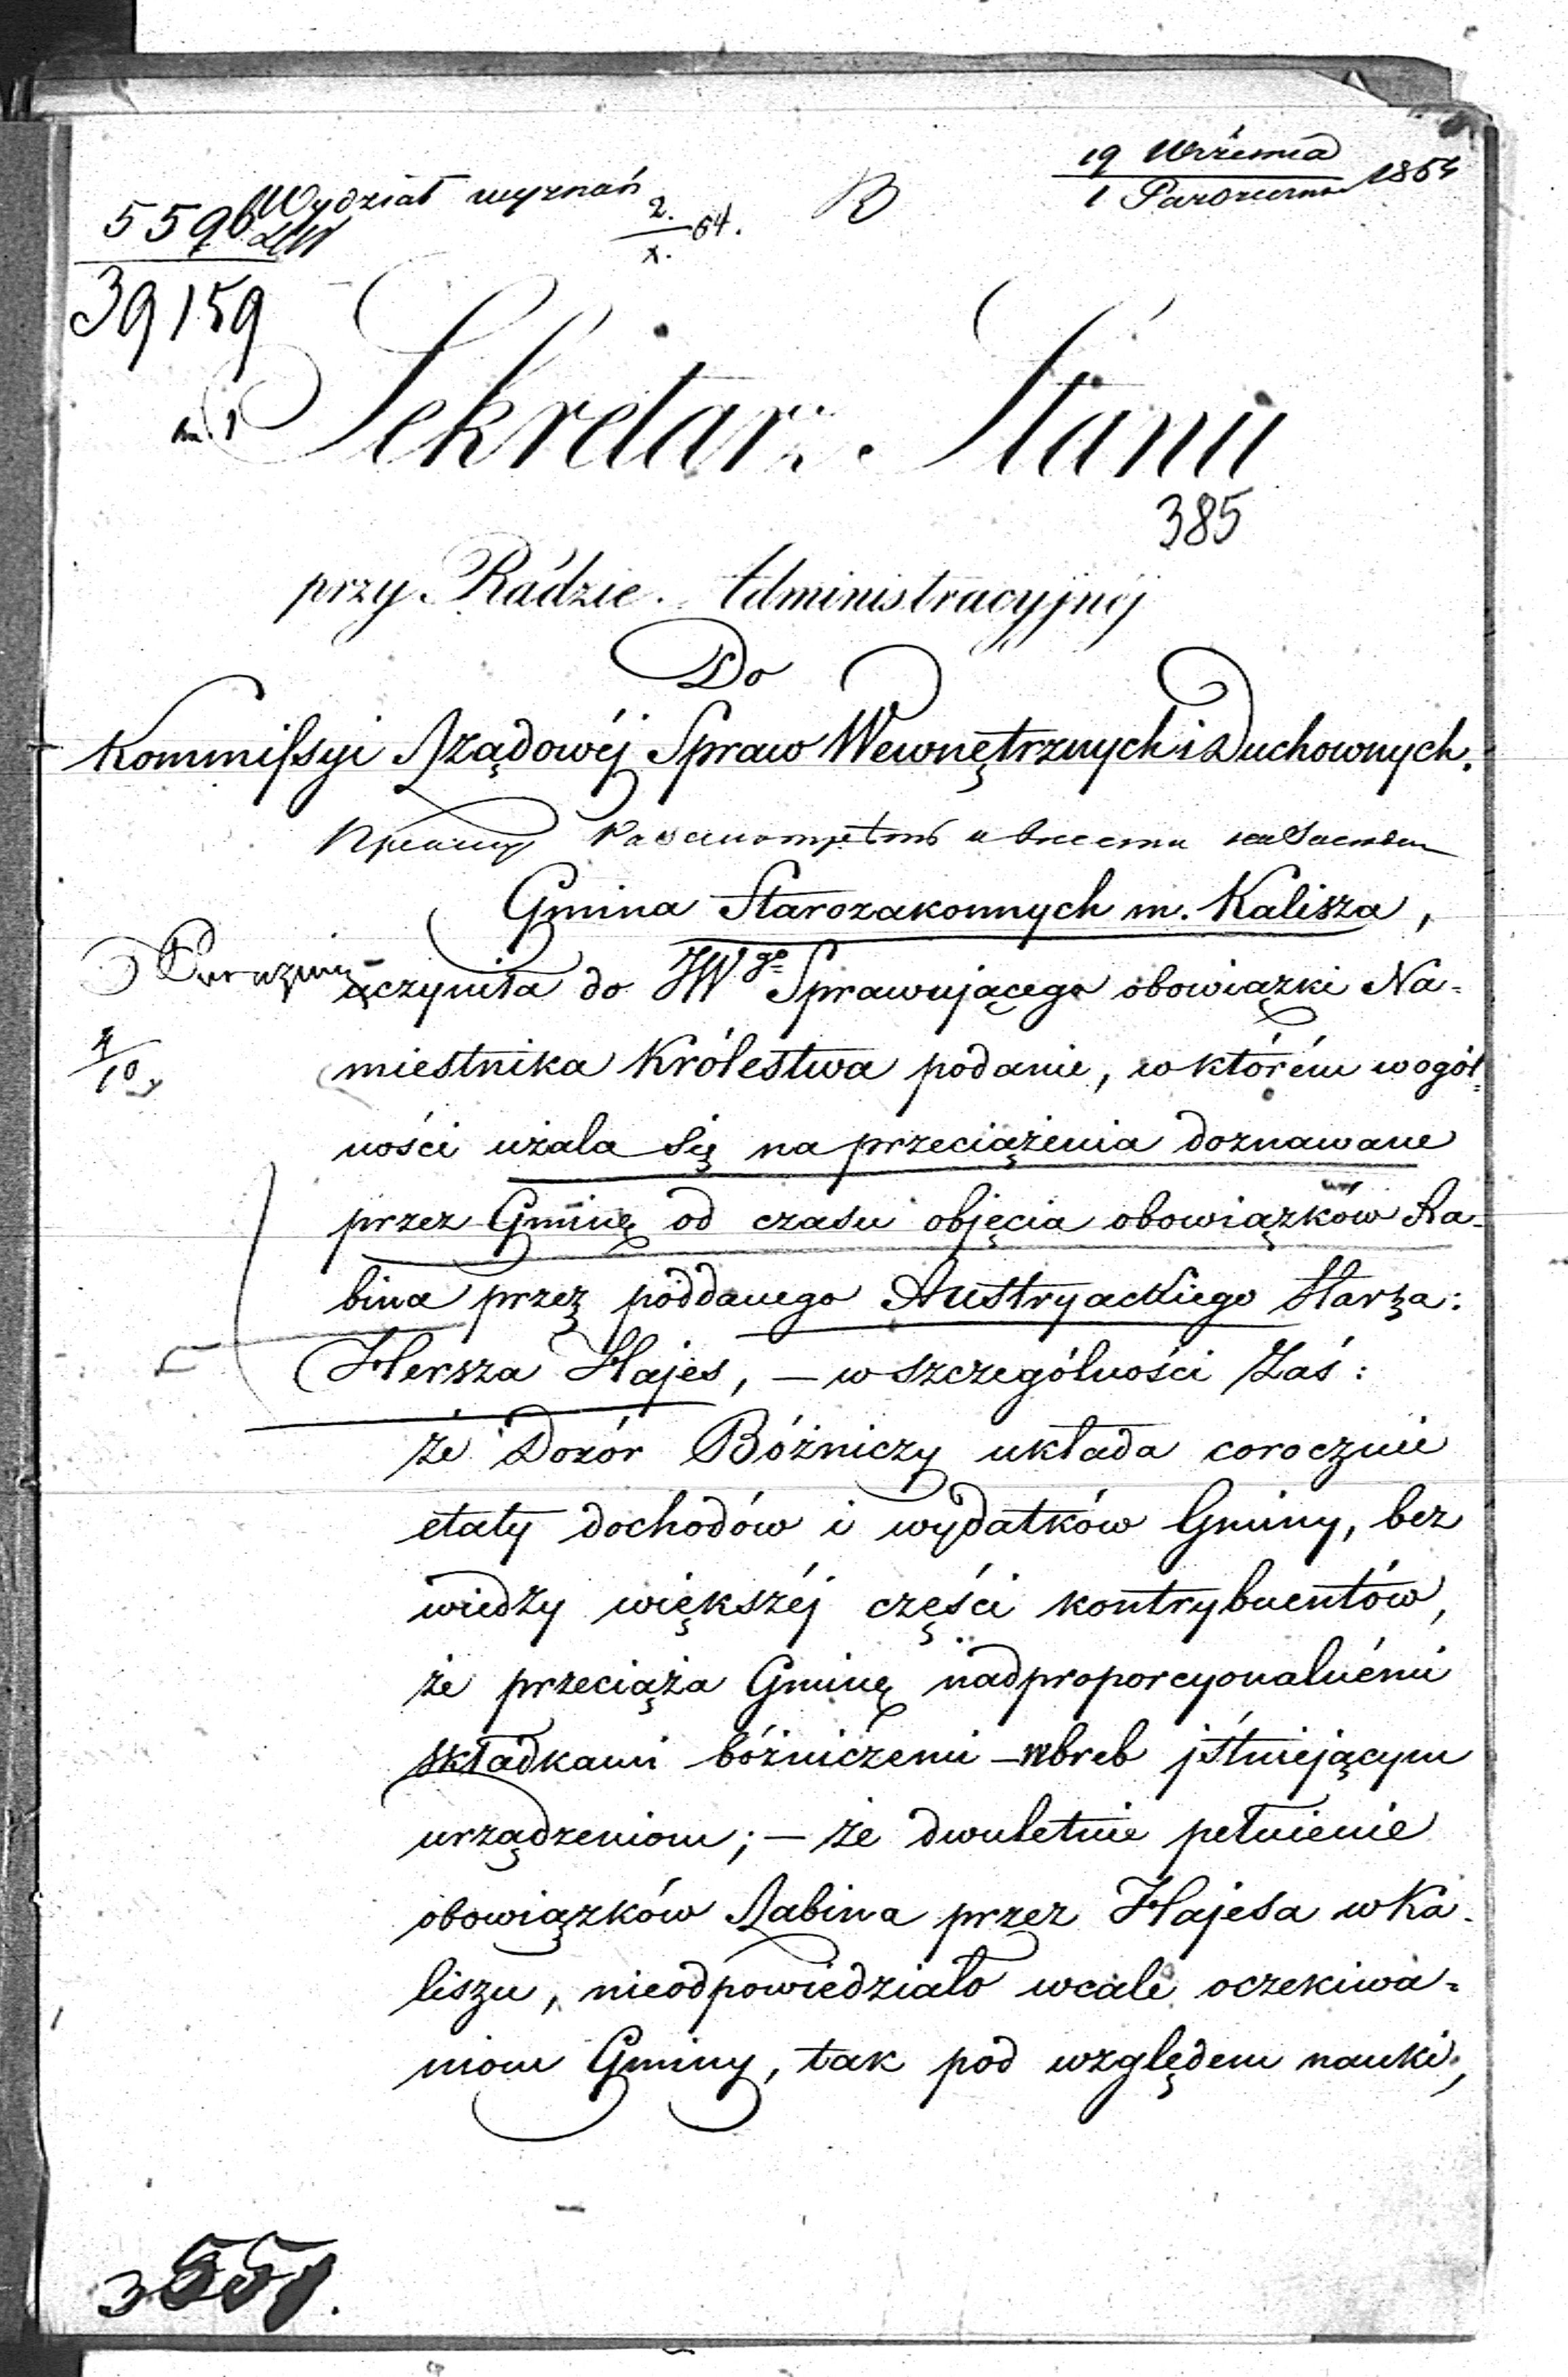 19 Września
1 Października 1864
Wydział wyznań
5596
39159
2.
x. 64.
B
Sekretarz Stanu
385
przy Radzie Administracyjnéj
Do
Kommissyi Rządowéj Spraw Wewnętrznych i Duchownych.
Gmina Starozakonnych m. Kalisza,
uczyniła do JWgo Sprawującego obowiązki Na-
miestnika Królestwa podanie, w którém w ogól-
ności użala się na przeciążenia doznawane
przez Gminę od czasu objęcia obowiązków Ra-
bina przez poddanego Austryackiego
Hersza Hajes, — w szczególności zaś:
że Dozór Bóżniczy układa corocznie
etaty dochodów i wydatków Gminy, bez
wiedzy większéj części kontrybuentów,
że przeciąża Gminę nadproporcyonalnémi
składkami bóżniczemi – wbreb jstniejącym
urządzeniom; — że dwuletnie pełnienie
obowiązków Rabina przez Hajesa w Ka-
liszu, nieodpowiedziało wcale oczekiwa-
niom Gminy, tak pod względem nauki,